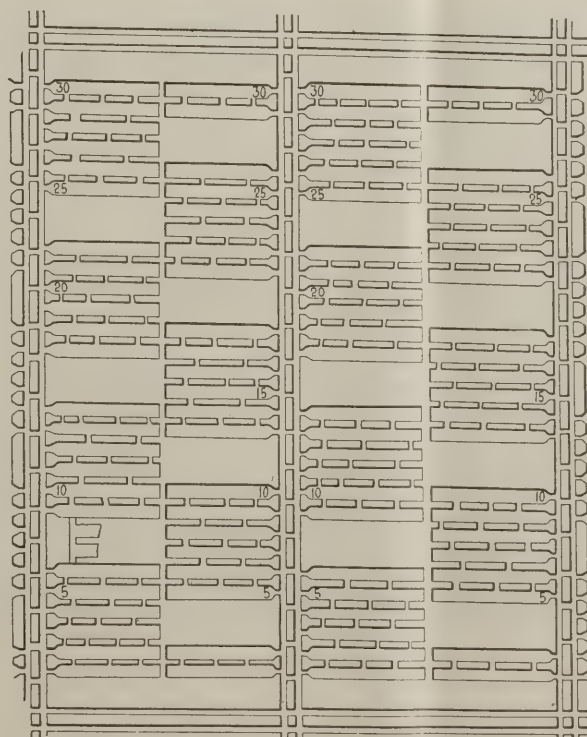 30 30 30 30
25 25 25 25
20 20
15 15
10 10 10 10
5 5 5 5